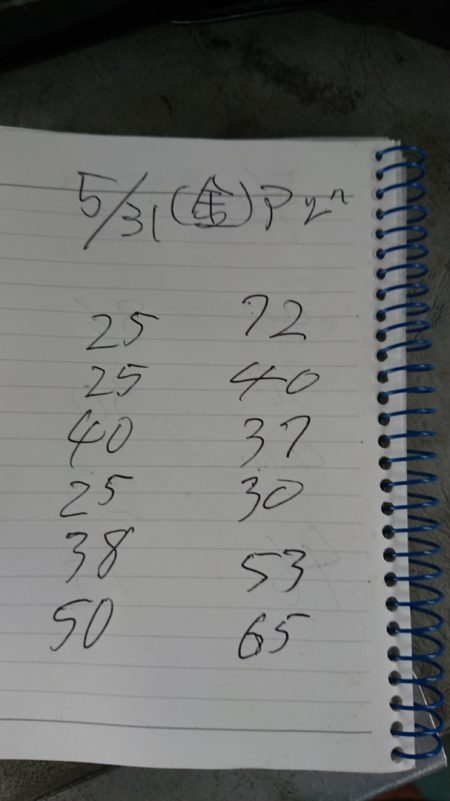 5/31(金)
25 72
25 40
40 37
25 30
38 53
50 65